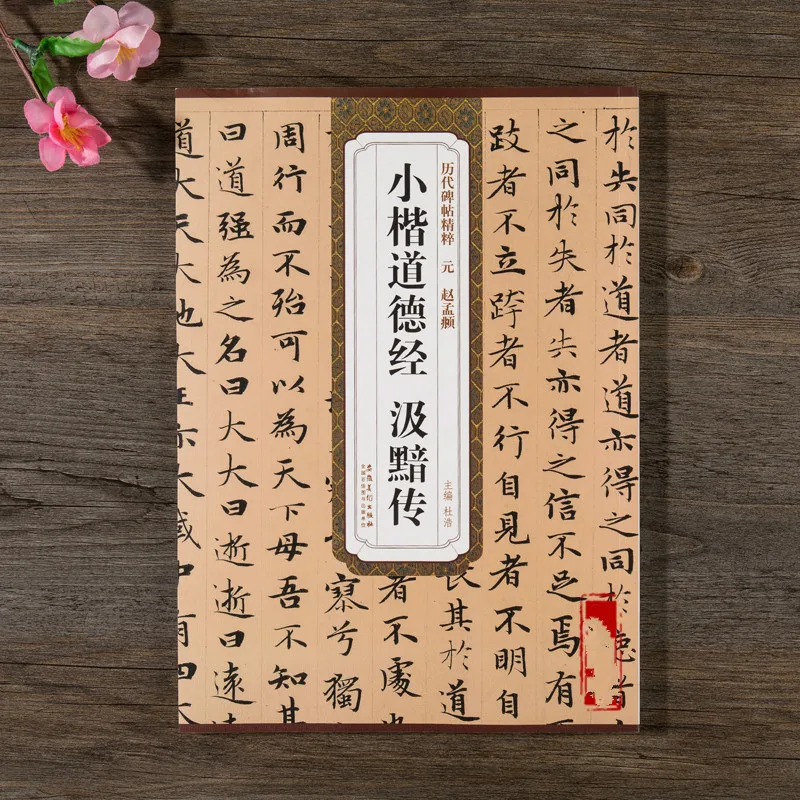 历代碑帖精粹 元 赵孟頫
小楷道德经 汲黯传
主编 杜浩
安徽美术出版社
全国百佳图书出版单位
於失同於道者道亦得之同於
之同於失者失亦得之信不足焉有
跂者不立跨者不行自見者不明自
長其於道
者不處也
寥兮獨
周行而不殆可以為天下母吾不知其
曰道强為之名曰大大曰逝逝曰遠遠
道大天大地大王亦大域中有四大